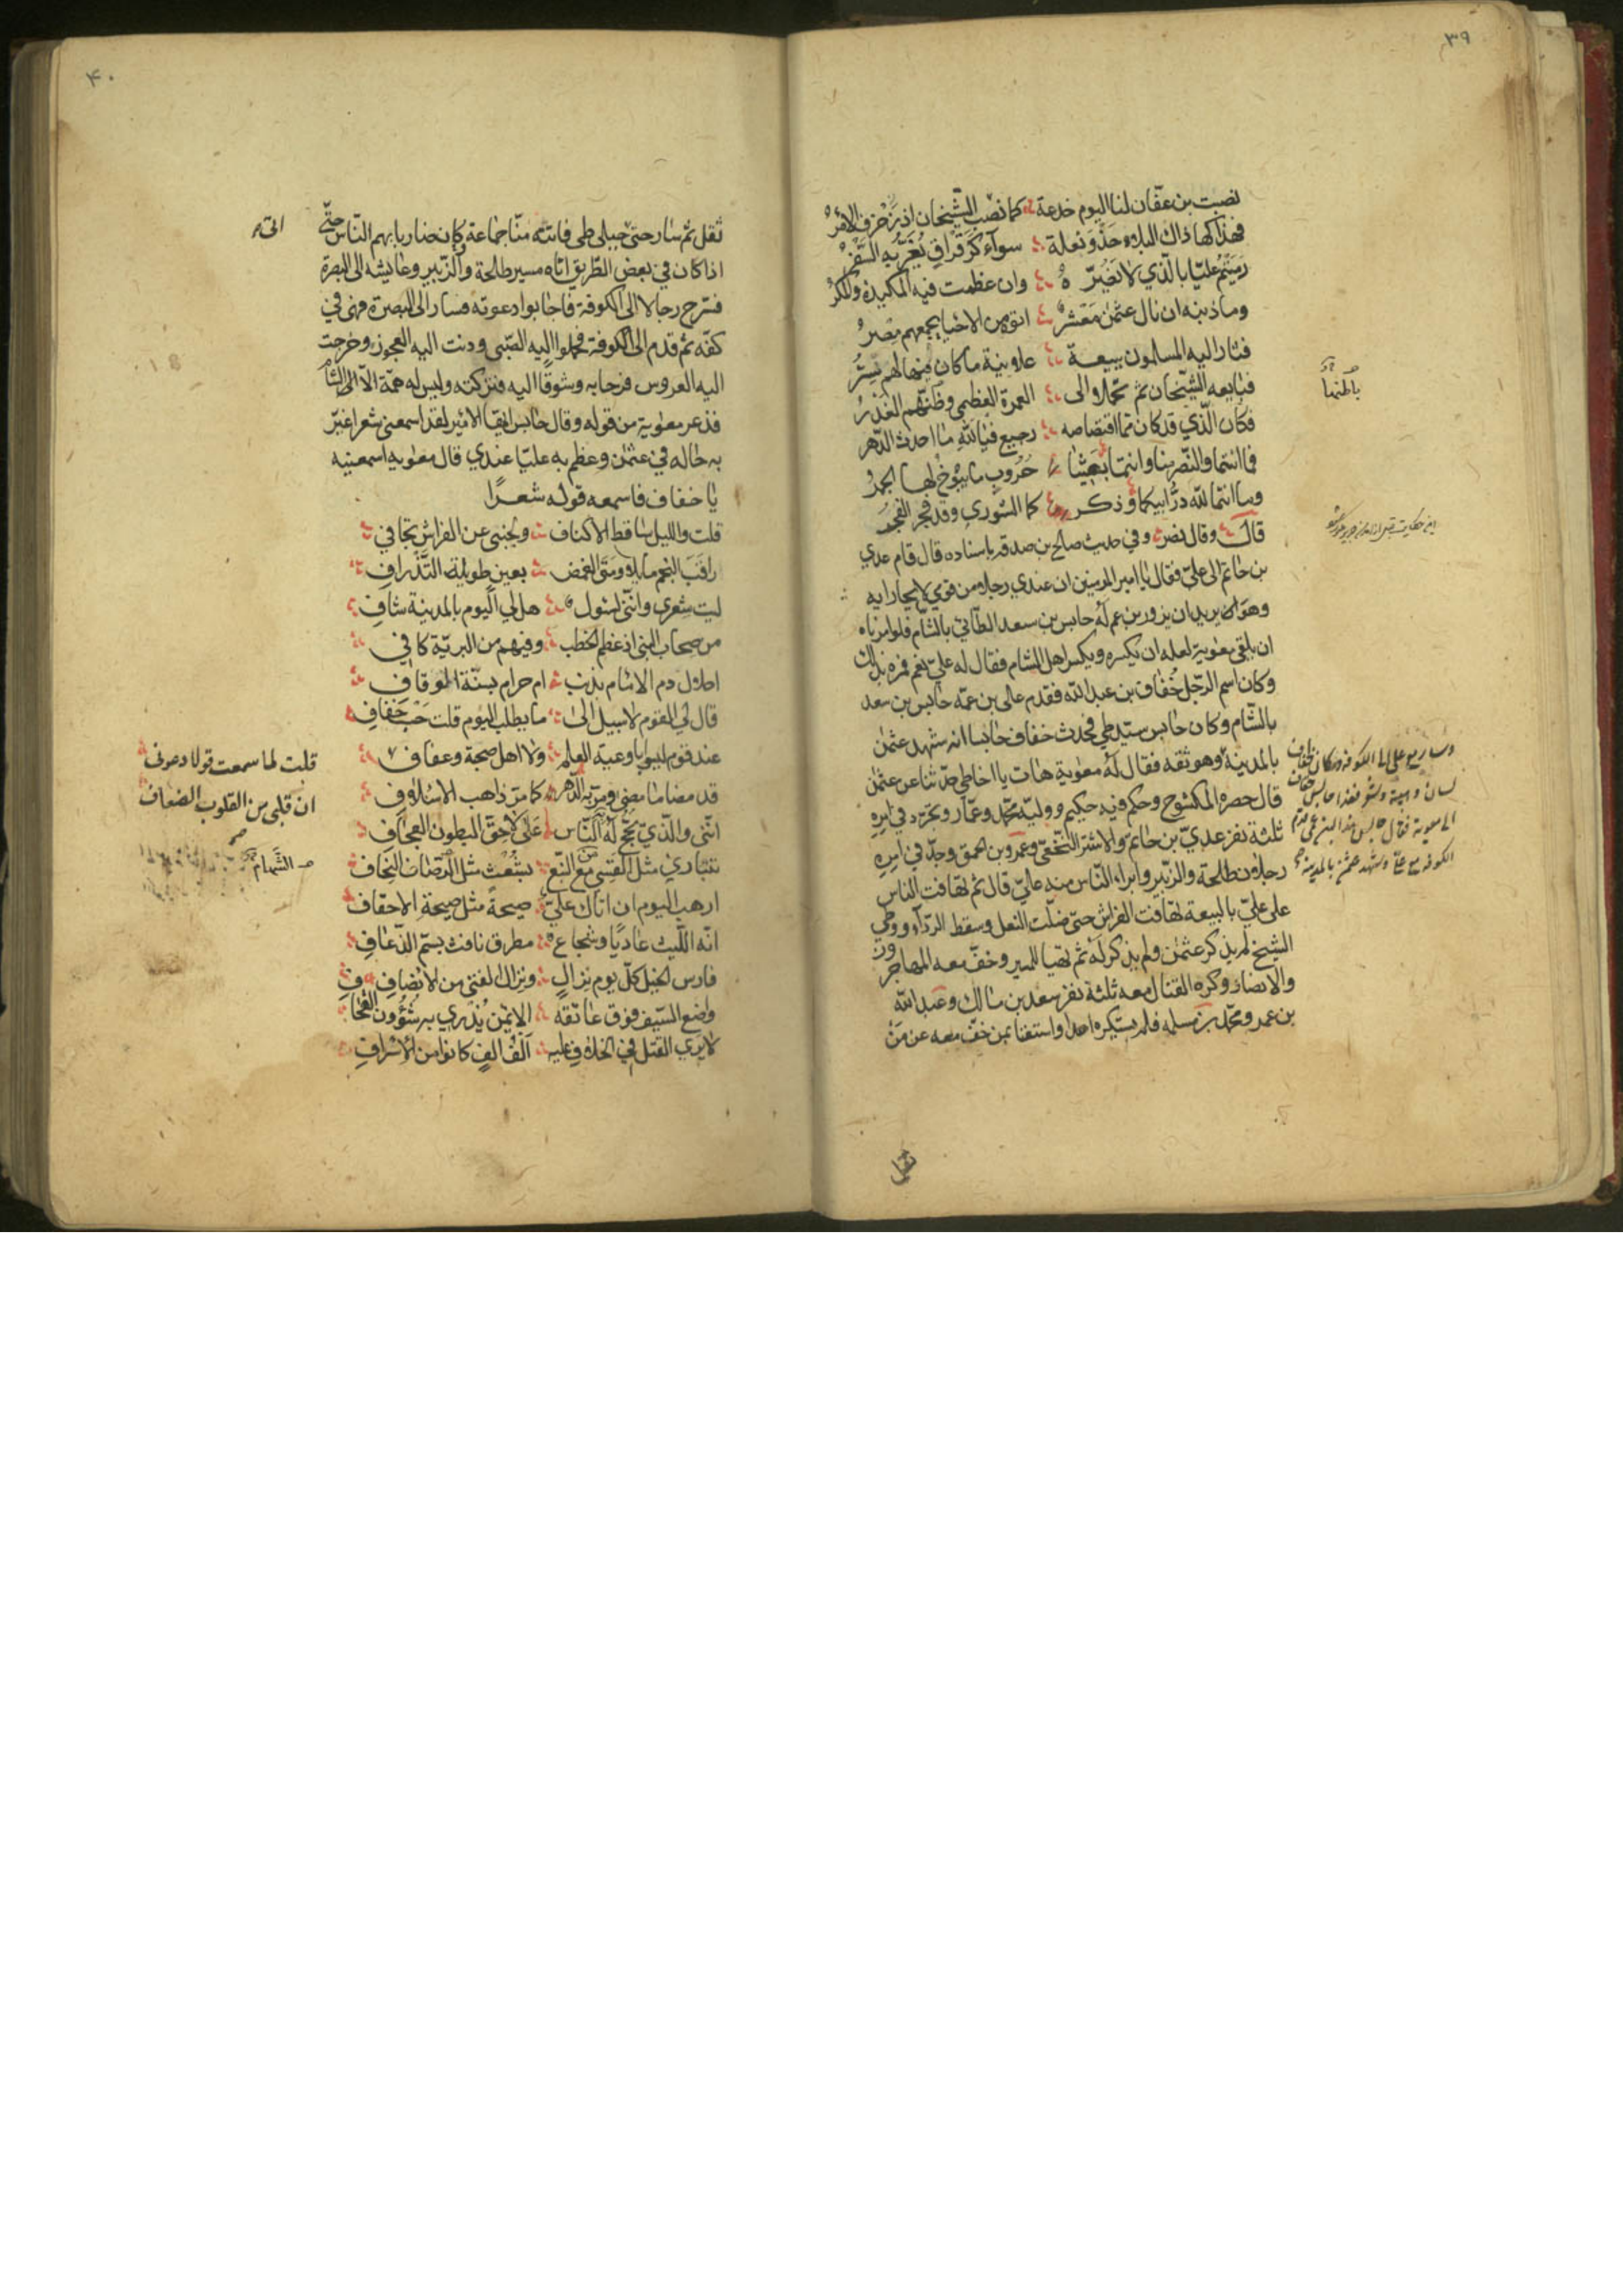 ٣٩
نصبت بن عفّان لنا اليوم خدعة كما نصب الشّيخان اذ زخرف الامر
فهذا كهاذاك البلاء حذو نعلة سوآء كرقراق يغرّ به السّفر
رميتم عليّا بالّذي لا يضرّه وان عظمت فيه المكيدة والمكر
وما ذنبه ان نال عثمن معشر اتوه من الاحياء يجمعهم مصر
فثار اليه المسلمون ببيعة علانية ما كان فيها لهم قسر
فبايعه الشّيخان ثم تحمّلا الى العمرة العظمى وظنّهم الغدر
فكان الّذي قد كان مما اقتصاصه رجيع فيالله ما احدث الدّهر
فما انتما والنّصر منا وانتما بعثتما حروب ما يبوخ لها الجمر
وما انتما لله درّ ابيكما وذكر كما الشورى وقد فجر الفجر
قال وقال نصر وفي حديث صالح بن صدقه باسناده قال قام عدي
بن حاتم الى عليّ فقال يا امير المؤمنين ان عندي رجلا من قومي لا يجارا به
وهو يريد ان يزور بن عم له حابس بن سعد الطائي بالشّام فلو امرناه
ان يلقى معوية لعله ان يكسره ويكسر اهل الشام فقال له عليّ نعم فمره بذلك
وكان اسم الرّجل خُفاف بن عبد الله فقدم على بن عمّه حابس بن سعد
بالشّام وكان حابس سيّد طي فحدث خفاف حابسا انه شهد عثمن
بالمدينة وهو ثقه فقال له معوية هات يا اخا طي حدّثنا عن عثمن
قال حصره المكشوح وحكم فيه حكيم ووليه محمّد وعمّار وتجرّد في امره
ثلثة نفر عديّ بن حاتم والاشتر النّخعيّ وعمرو بن الحمق وجدّ في امره
رجلان طلحة والزّبير وابراء النّاس منه عليّ قال ثم تهافت الناس
على عليّ بالبيعة تهافت الفراش حتّى ضلّت النعل وسقط الردآء ووطي
الشيخ لم يذكر عثمن ولم يذكر له ثم تهيا للمسير وخفّ معه المهاجرون
والانصار وكره القتال معه ثلثة نفر سعد بن مالك وعبد الله
بن عمر ومحمّد بن مسلمه فلم يستكره احدا واستغنا بمن خفّ معه عن من
ثقل
وسار مع علي الى الكوفه وكان لخفاف
لسان وهيئة وشعر فغدا حابس بخفاف
الى معوية فقال حابس هذا ابن عمي قدم
الكوفه مع علي وشهد عثمن بالمدينة
٤٠
ثقل ثم سار حتى جبلي طي فاتته منّا جماعة كان ضاربا بهم النّاس حتّى
اذا كان في بعض الطّريق اتاه مسير طلحة والزّبير وعايشه الى البصرة
فسّرح رجالا الى الكوفة فاجابوا دعوته فسار الى البصرة فهي في
كفّه ثم قدم الى الكوفة فحملوا اليه الصّبي ودنت اليه العجوز وخرجت
اليه العروس فرحا به وشوقا اليه فتركته وليس له همّة الّا الى الشام
فذعر معوية من قوله وقال حابس ايّها الامير لقد اسمعني شعرا غيّر
به حاله في عثمن وعظم به عليّا عندي قال معويه اسمعنيه
يا خفاف فاسمعه قوله شعرًا
قلت والليل ساقط الاكناف ولجنبي عن الفراش تجافي
راقب النجم مايلا ومتى الغمض بعين طويلة التّذراف
ليت شعري وانّني لسئول هل لي اليوم بالمدينة شاف
من صحاب النبي اذ عظم الخطب وفيهم من البريّة كافي
احلال دم الامام بذنب ام حرام بسنّة الوقاف
قال لي القوم لا سبيل الى ما يطلب اليوم قلت حسب خفاف
عند قوم ليسوا باوعية العلم ولا اهل صحبة وعفاف
قلت لما سمعت قولا دعوني
ان قلبي من القلوب الضعاف
قد مضا ما مضى ومرّ به الدّهر كما مرّ ذاهب الاسلاف
انّني والّذي يحجّ له النّاس على لاحق البطون العجاف
تتباري مثل القسّي من النّبع بشُعث مثل الرّصاف النحاف
ارهب اليوم ان اتاك عليّ صيحةً مثل صيحة الاحقاف
انّه اللّيث عاديًا وشجاع مطرق نافث بسمّ الذّعاف
فارس الخيل كلّ يوم نزال ونزال الفتى من الانصاف
واضع السّيف فوق عاتقه الايمن يُذري به شؤون القحاف
لا يرى القتل في الخلاف عليه الف الف كانوا من الاشراف